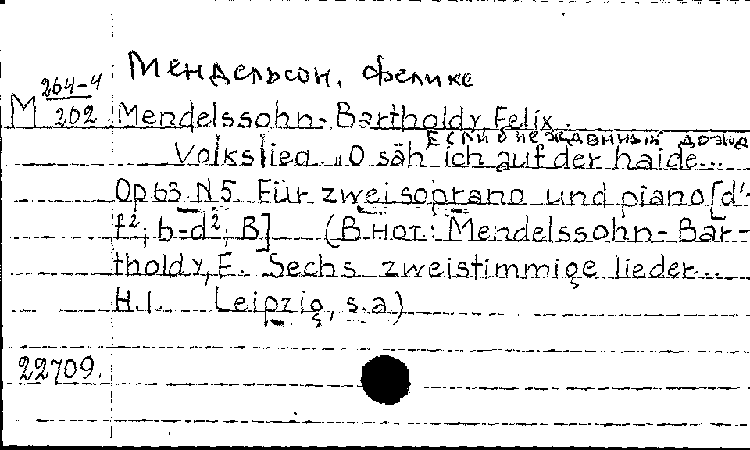 Мендельсон, Феликс
264-4
М 202
Mendelssohn-Bartholdy Felix.
Если б нежданный дожд
Volkslied. „O säh ich auf der haide...
Op 63 N 5. Für zwei soprano und piano [d'-
f²; b-d²; B] (В нот.: Mendelssohn-Bar-
tholdy, F. Sechs zweistimmige lieder...
H.I. Leipzig, s.a)
22709.